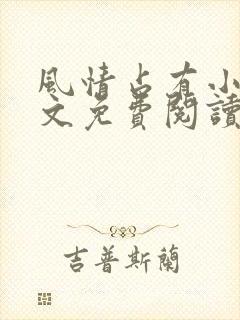 風情占有小
文免費閱讀
吉普斯蘭